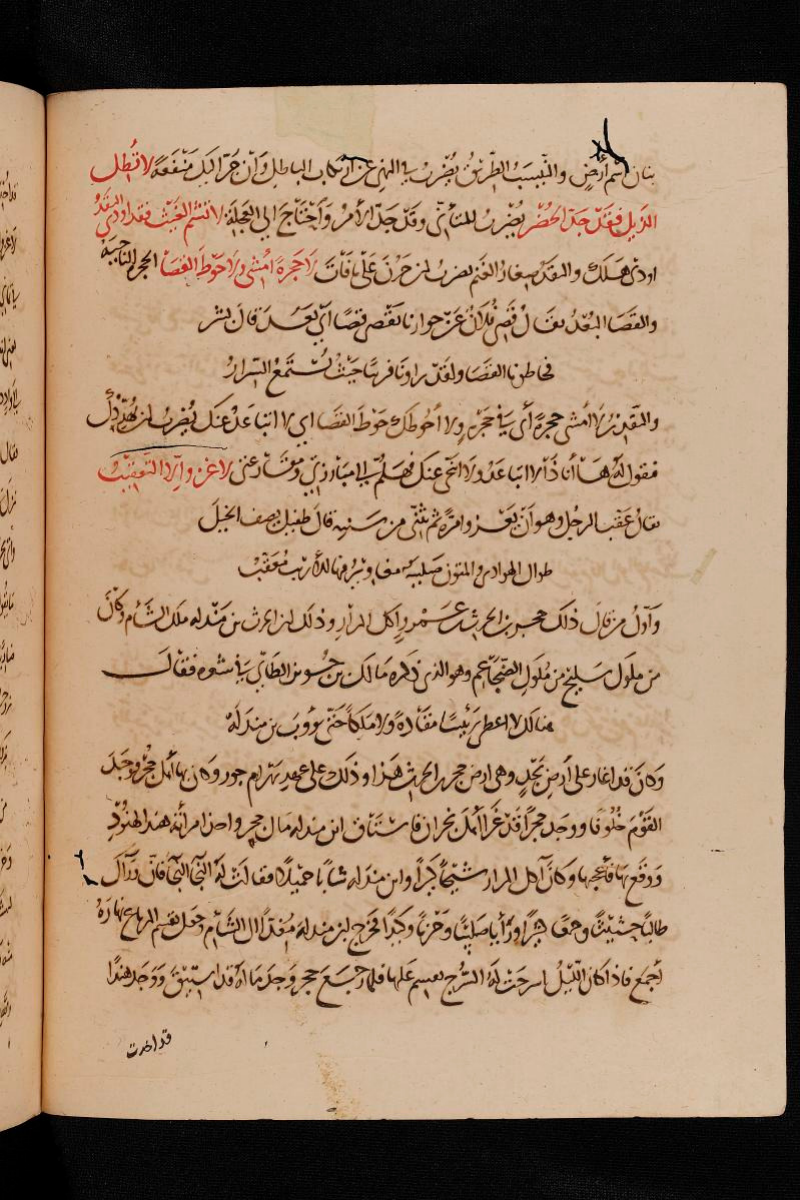 بنان اسم أرض والنيسب الطريق يضرب في النهي عن ارتكاب الباطل وان جرّ اليك منفعة لا تُطِل
الذيل فقد جدّ الحُضْر يضرب للمتأني وقد جدّ الأمر واحتاج الى العجلة لا تشم الغيث فقد اودى النقد
اودى هلك والنقد صغار الغنم يضرب لمن حزن على ما فات لا حجرة امشي ولا حوط القصا الحجرة الناحية
والقصا البعد يقال قصى فلان عن جوارنا يقصى قصًا اي بعد قال بشر
فحاطونا القصا ولقد راونا قريبا حيث يُستمع السرار
والتقدير لا امشى حجرة أى في حجرة ولا أحوطك حوط القصا اي لا اتباعد عنك يضرب لمن يتهددك
فيقول له هَا أنا ذا لا اتباعد ولا اتنحى عنك فهلم الى مبارزتي ومقارعتي لا غزو الّا التعقيب
يقال عقب الرجل وهو أن يغزو مرّة ثم يثنّى من سنته قال طفيل يصف الخيل
طوال الهوادي والمتون صليبة مغاوير فيها للأريب معقّب
وأول من قال ذلك حجر بن الحرث بن عمرو آكل المرار وذلك ان الحرث بن مندله ملك الشام وكان
من ملوك سليح من ملوك الضجاعم وهو الذي ذكره مالك بن جوين الطائي في شعره فقال
هنالك لا اعطي رئيسا مقادة ولا ملكا حتى يؤوب بن مندله
وكان قد اغار على أرض نجد وهي ارض حجر بن الحرث هذا وذلك على عهد بهرام جور وكان بها أهل حجر فوجد
القوم خلوفا ووجد حجرًا قد غزا أهل نجران فاستاق ابن مندله مال حجر واخذ امرأته هند الهنود
ووقع بها فأعجبها وكان آكل المرار شيخًا كبيرًا وابن مندله شابا جميلًا فقالت له النجا النجا فان وراك
طالبًا حثيثًا وجمعًا كثيرًا ورأيا صليبًا وحزمًا وكيدًا فخرج ابن مندله مغذّا الى الشام وجعل يقسم المرباع نهاره
أجمع فاذا كان الليل أسرجت له السُرج يقسم عليها فلما رجع حجر وجد ماله قد استيق ووجد هندًا
قد اخذت